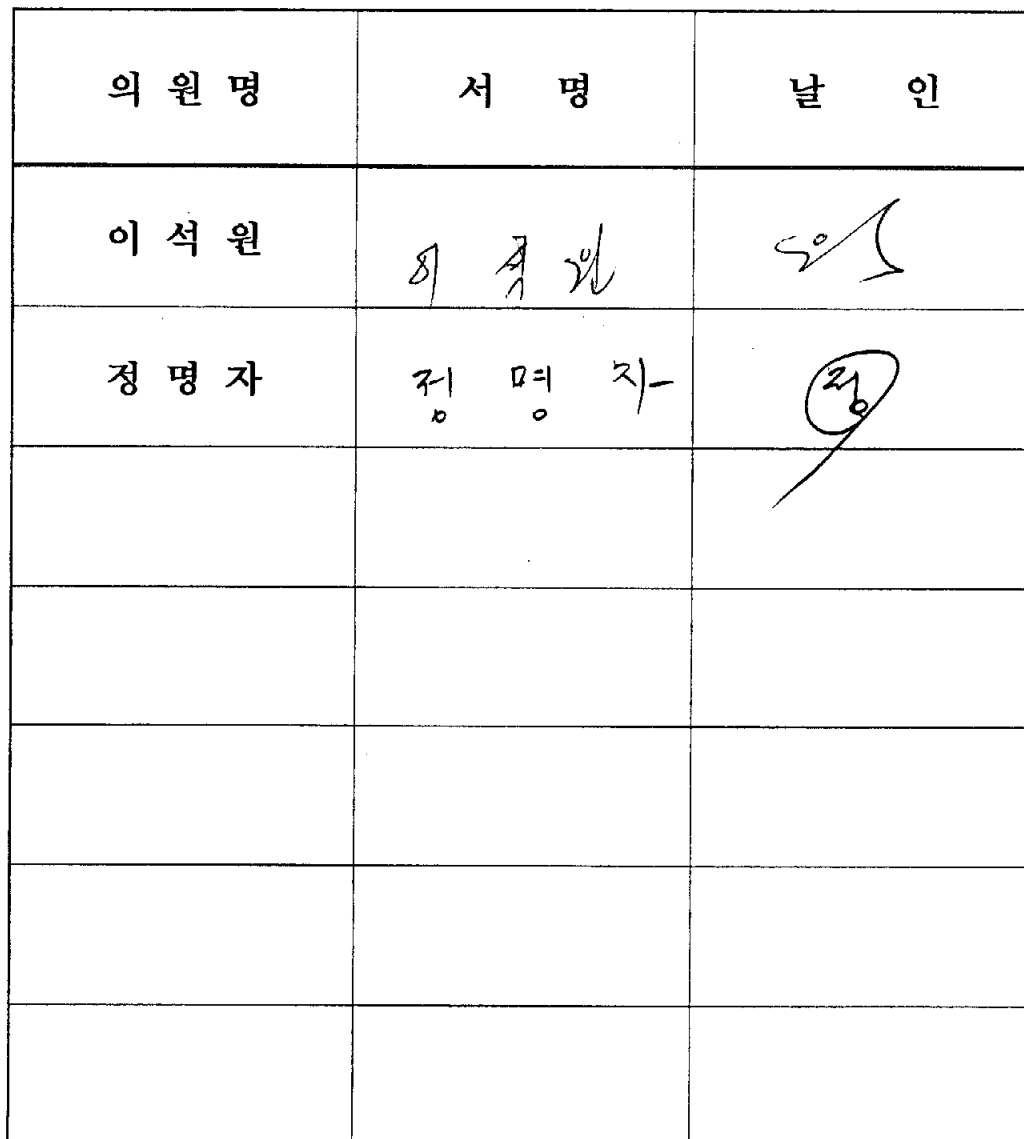 의 원 명 서 명 날 인
이 석 원 이 석 원
정 명 자 정 명 자 정